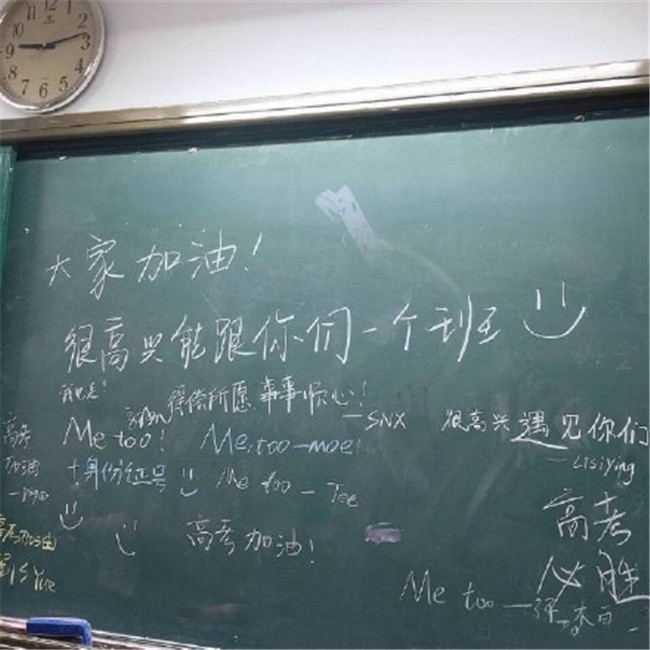 12
11
10
9
8
7
6
5
4
3
2
大家加油!
很高兴能跟你们一个班
我也是!
得偿所愿 事事顺心!
—SNX
Me too!
Me too-moe!
很高兴遇见你们
—Lisiying
高考
加油
+身份证号
Me too — Tee
高考加油!
高考加油
高考
必胜
Me too —